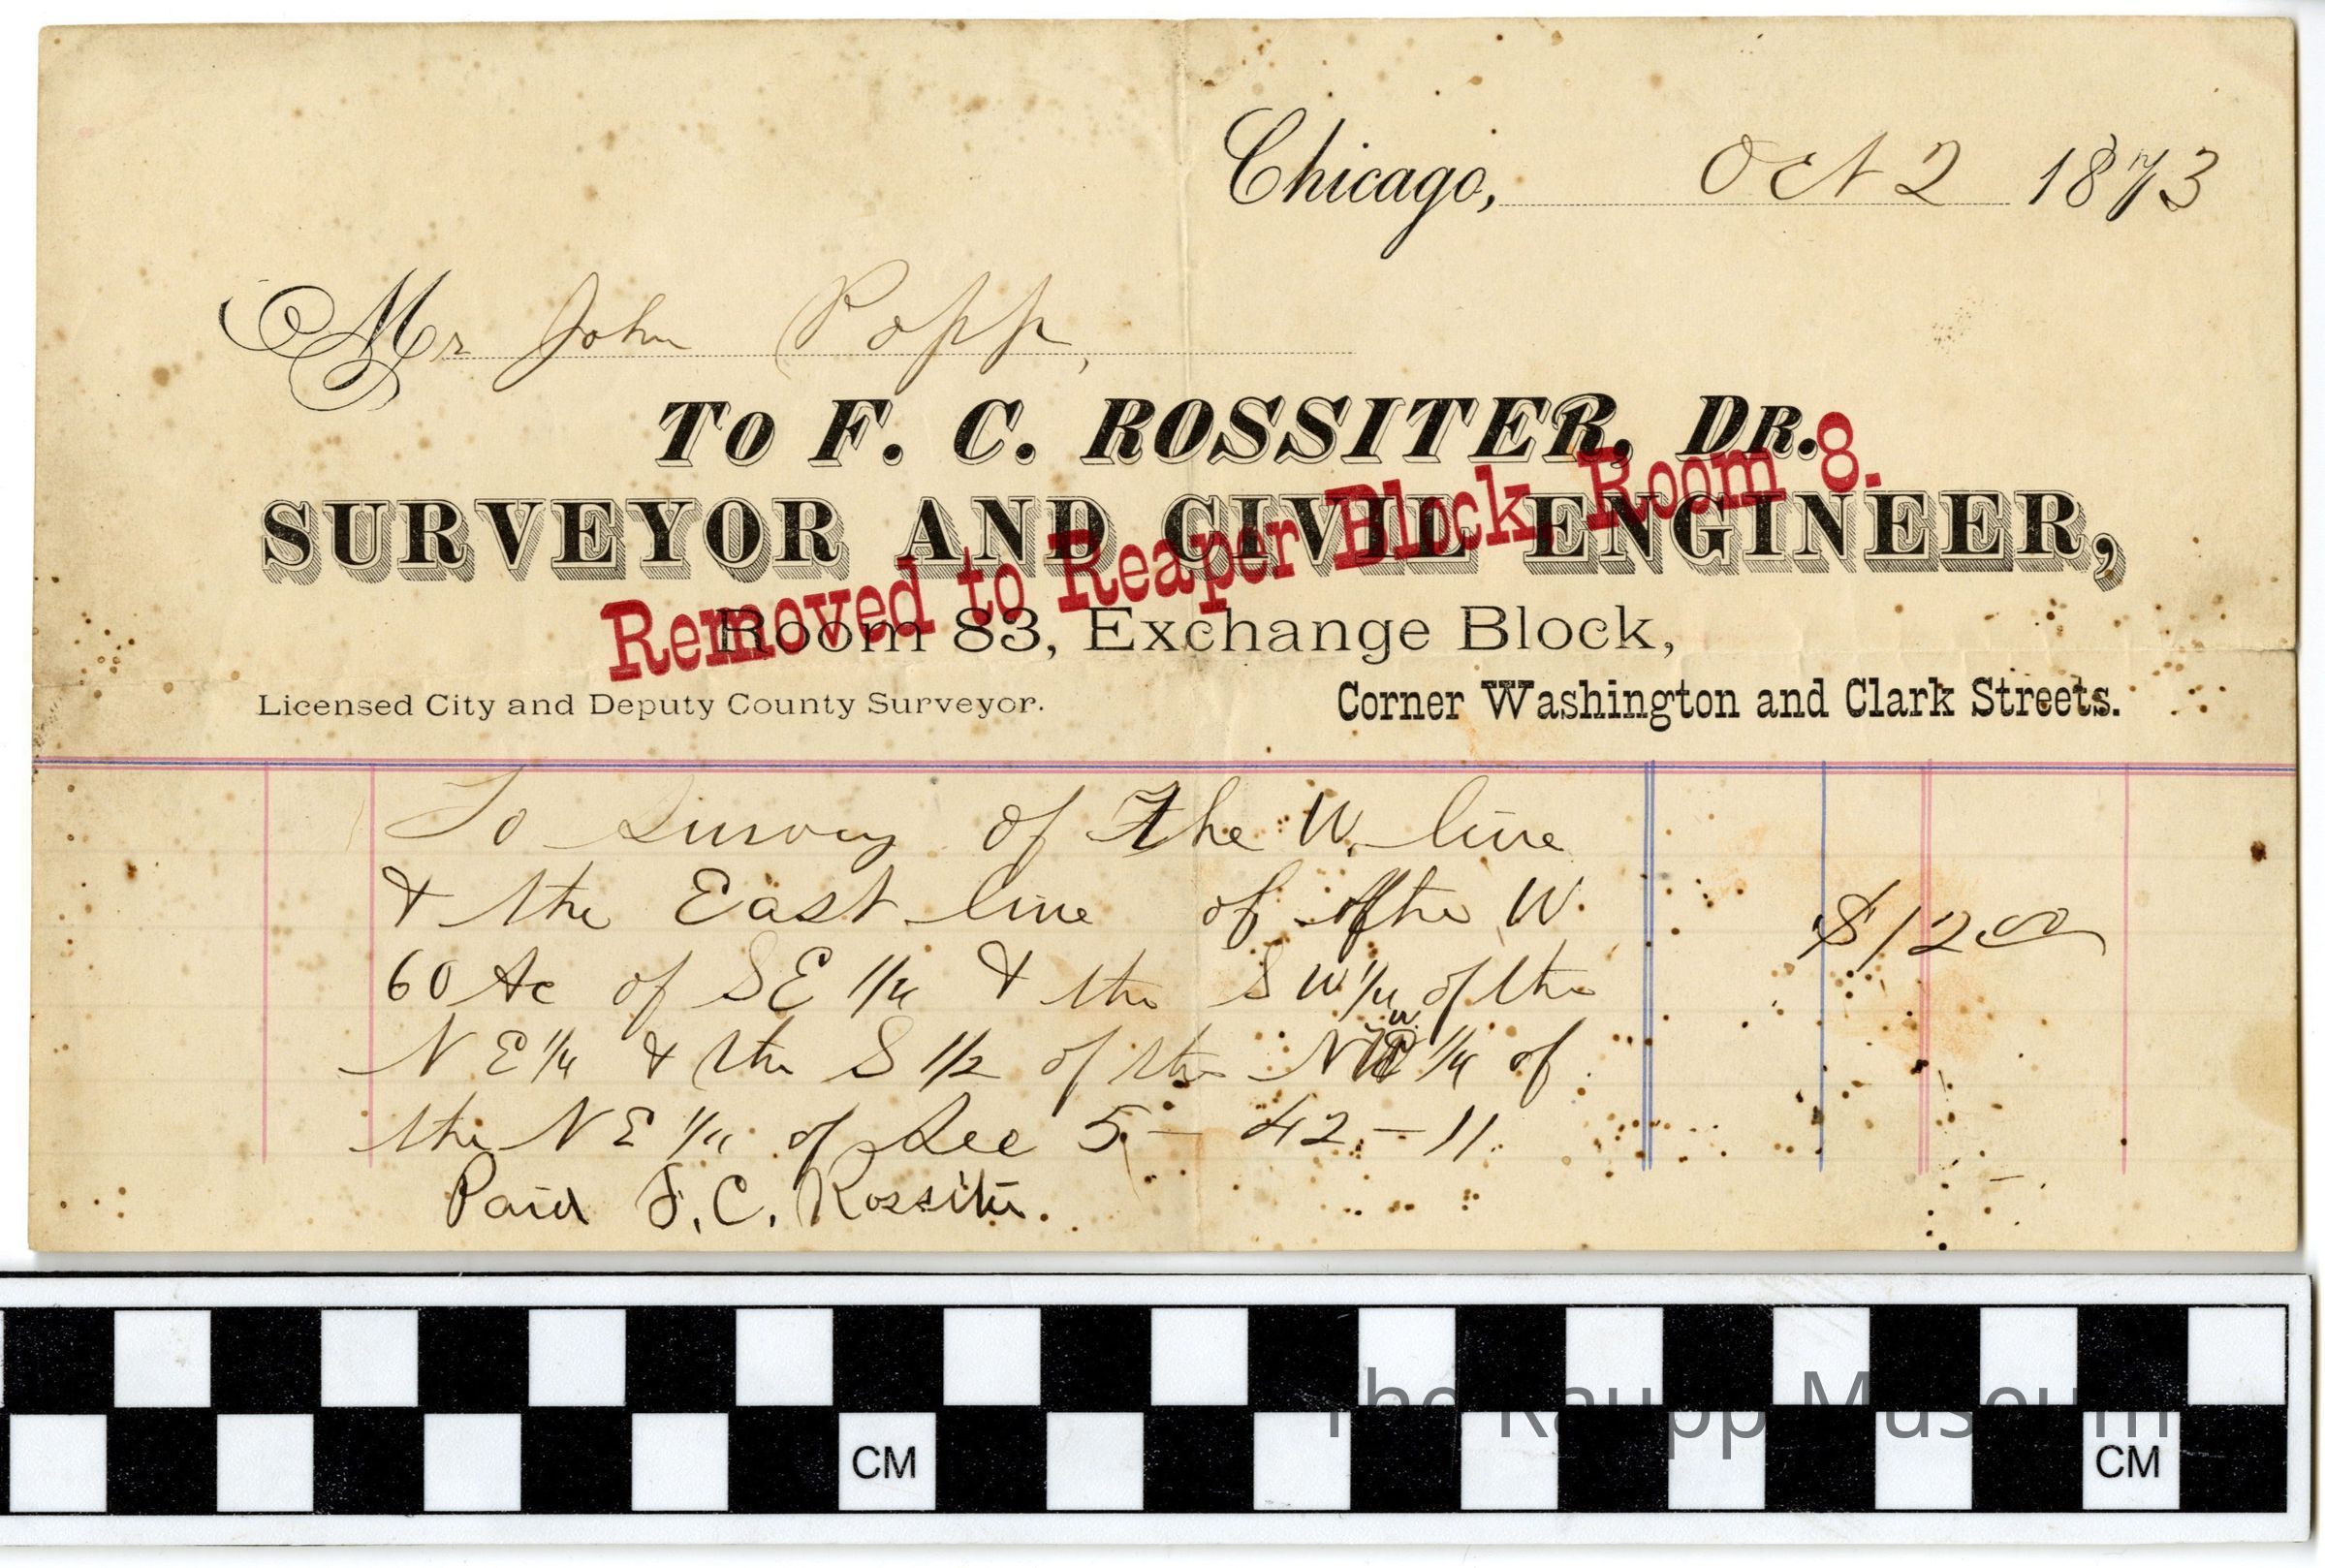 Chicago, Oct 2 1873
Mr John Popp,
To F. C. ROSSITER, DR.
SURVEYOR AND CIVIL ENGINEER,
Removed to Reaper Block, Room 8.
Room 83, Exchange Block,
Licensed City and Deputy County Surveyor. Corner Washington and Clark Streets.
To Survey of the W. line
& the East line of the W.
$12 00
60 Ac of SE 1/4 & the SW 1/4 of the
NE 1/4 & the S 1/2 of the NW 1/4 of
the NE 1/4 of Sec 5 - 42 - 11.
Paid F. C. Rossiter.
The Raupp Museum
CM CM